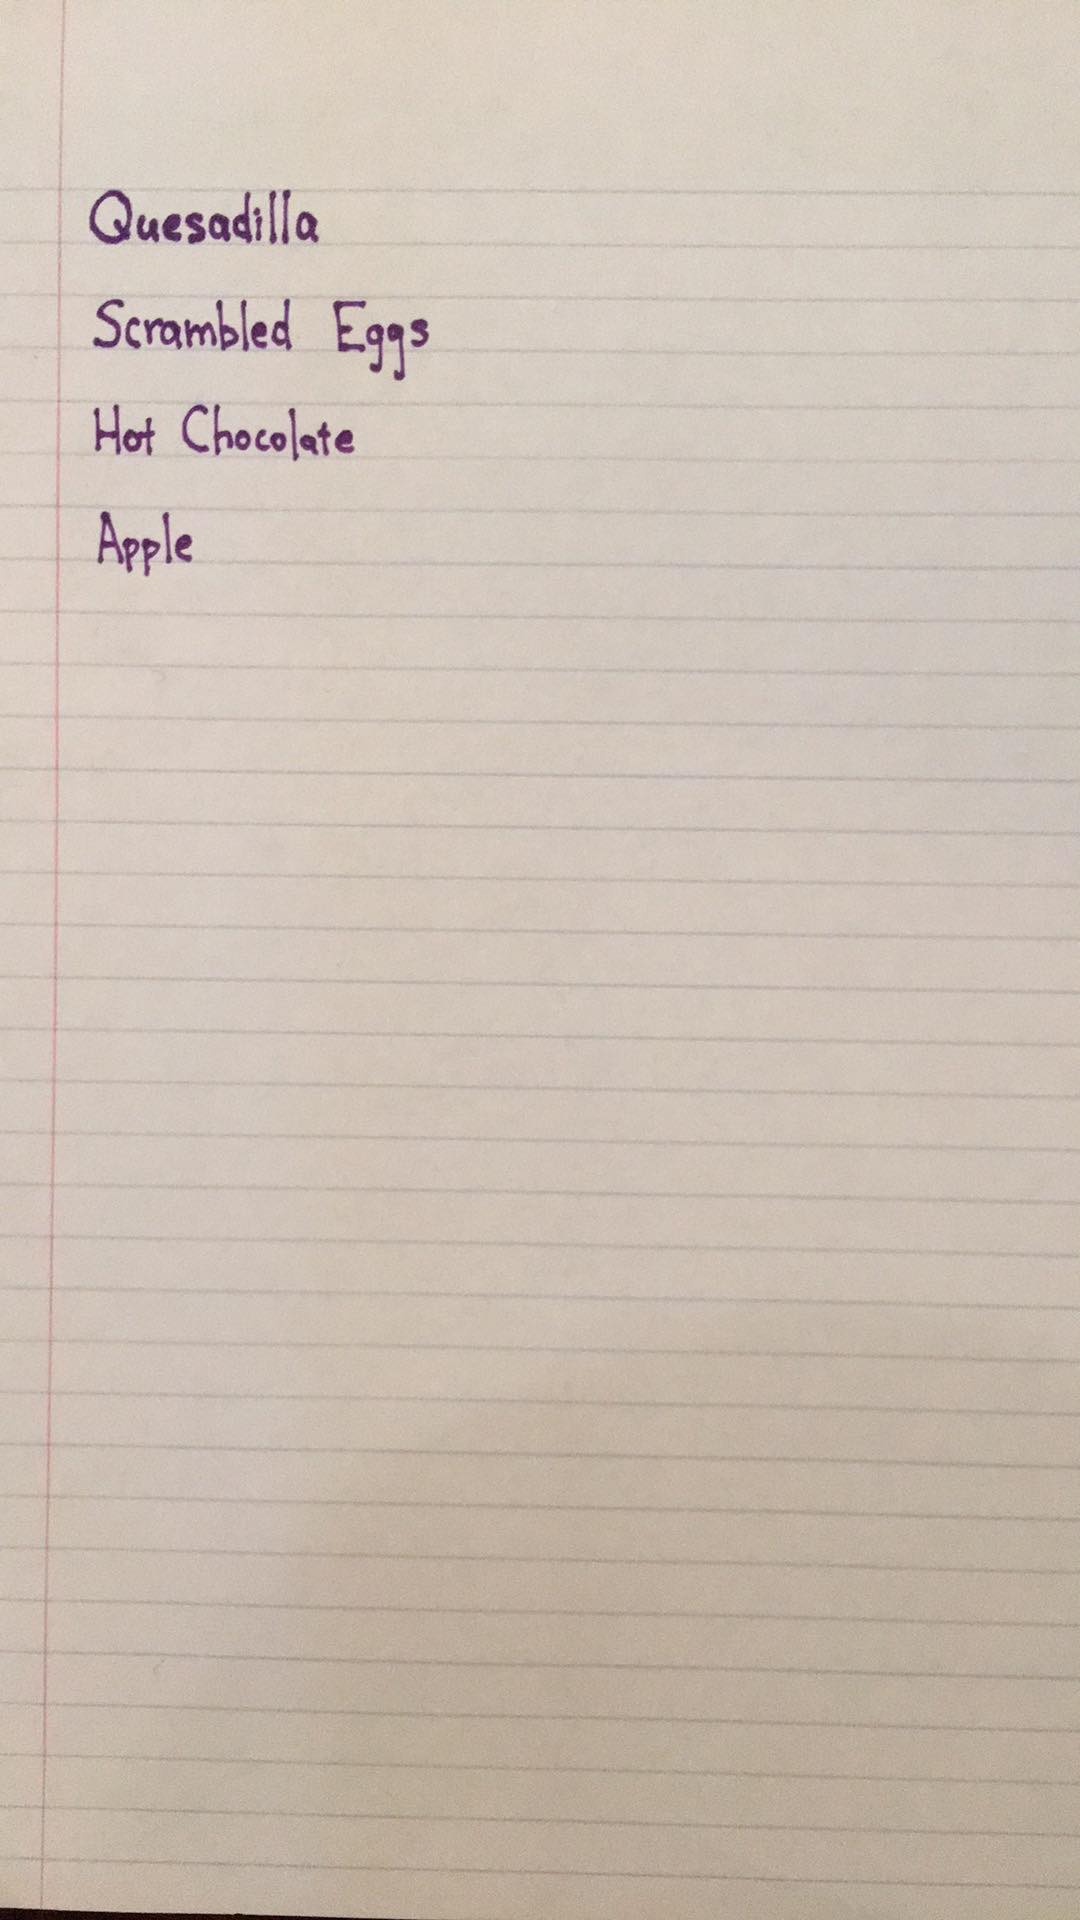 Quesadilla
Scrambled Eggs
Hot Chocolate
Apple